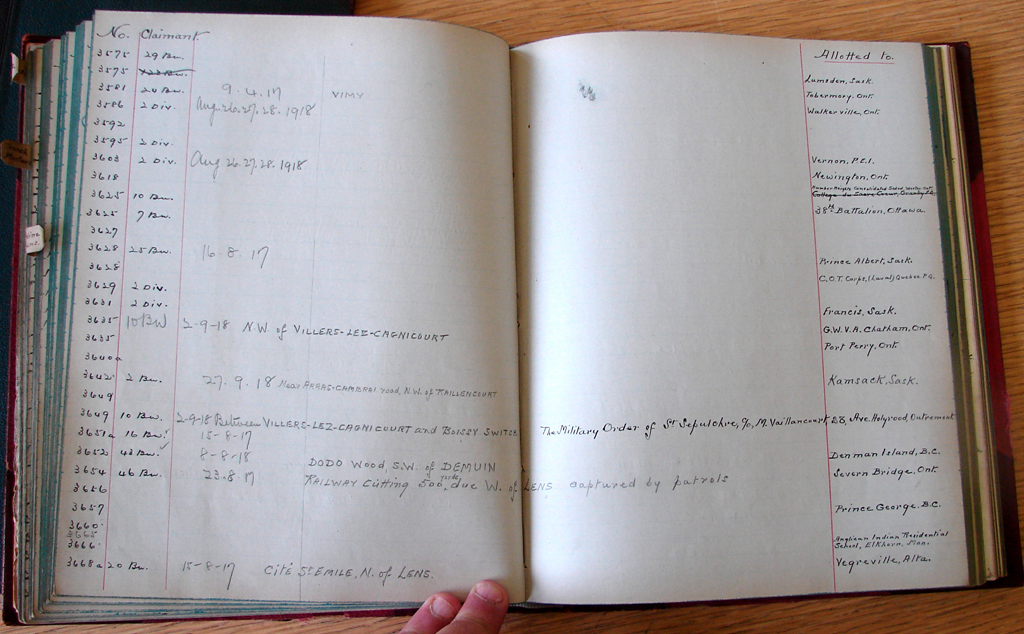 No. Claimant. Allotted to.
3575 29 Bn.
3575
3581 20 Bn. 9.4.17 VIMY Lumsden, Sask.
3586 2 Div. Aug. 26.27.28.1918 Tobermory, Ont.
3592 Walkerville, Ont.
3595 2 Div.
3603 2 Div. Aug 26.27.28.1918 Vernon, P.E.I.
3618 Newington, Ont.
3625 10 Bn. College du Sacre Coeur, Granby P.Q.
3625 7 Bn. 38th Battalion, Ottawa.
3627
3628 25 Bn. 16.8.17 Prince Albert, Sask.
3628 C.O.T. Corps, (Laval) Quebec P.Q.
3629 2 Div.
3631 2 Div. Francis, Sask.
3635 10 Bn 2-9-18 N.W. of VILLERS-LEZ-CAGNICOURT G.W.V.A. Chatham, Ont.
3635 Port Perry, Ont.
3640a
3642 2 Bn. 27.9.18 Near ARRAS-CAMBRAI road, N.W. of RAILLENCOURT Kamsack, Sask.
3649
3649 10 Bn. 2-9-18 Between VILLERS-LEZ-CAGNICOURT and BOISSY SWITCH The Military Order of St Sepulchre, c/o, M. Vaillancourt, 28, Ave. Holyrood, Outremont
3651a 16 Bn. 15-8-17
3652 43 Bn. 8-8-18 DODO Wood, S.W. of DEMUIN Denman Island, B.C.
3654 46 Bn. 23.8.17 RAILWAY Cutting 500 yards due W. of LENS captured by patrols Severn Bridge, Ont.
3656
3657 Prince George, B.C.
3660
3665
3666 Anglican Indian Residential School, Elkhorn, Man.
3668a 20 Bn. 15-8-17 Cité St EMILE, N. of LENS. Vegreville, Alta.